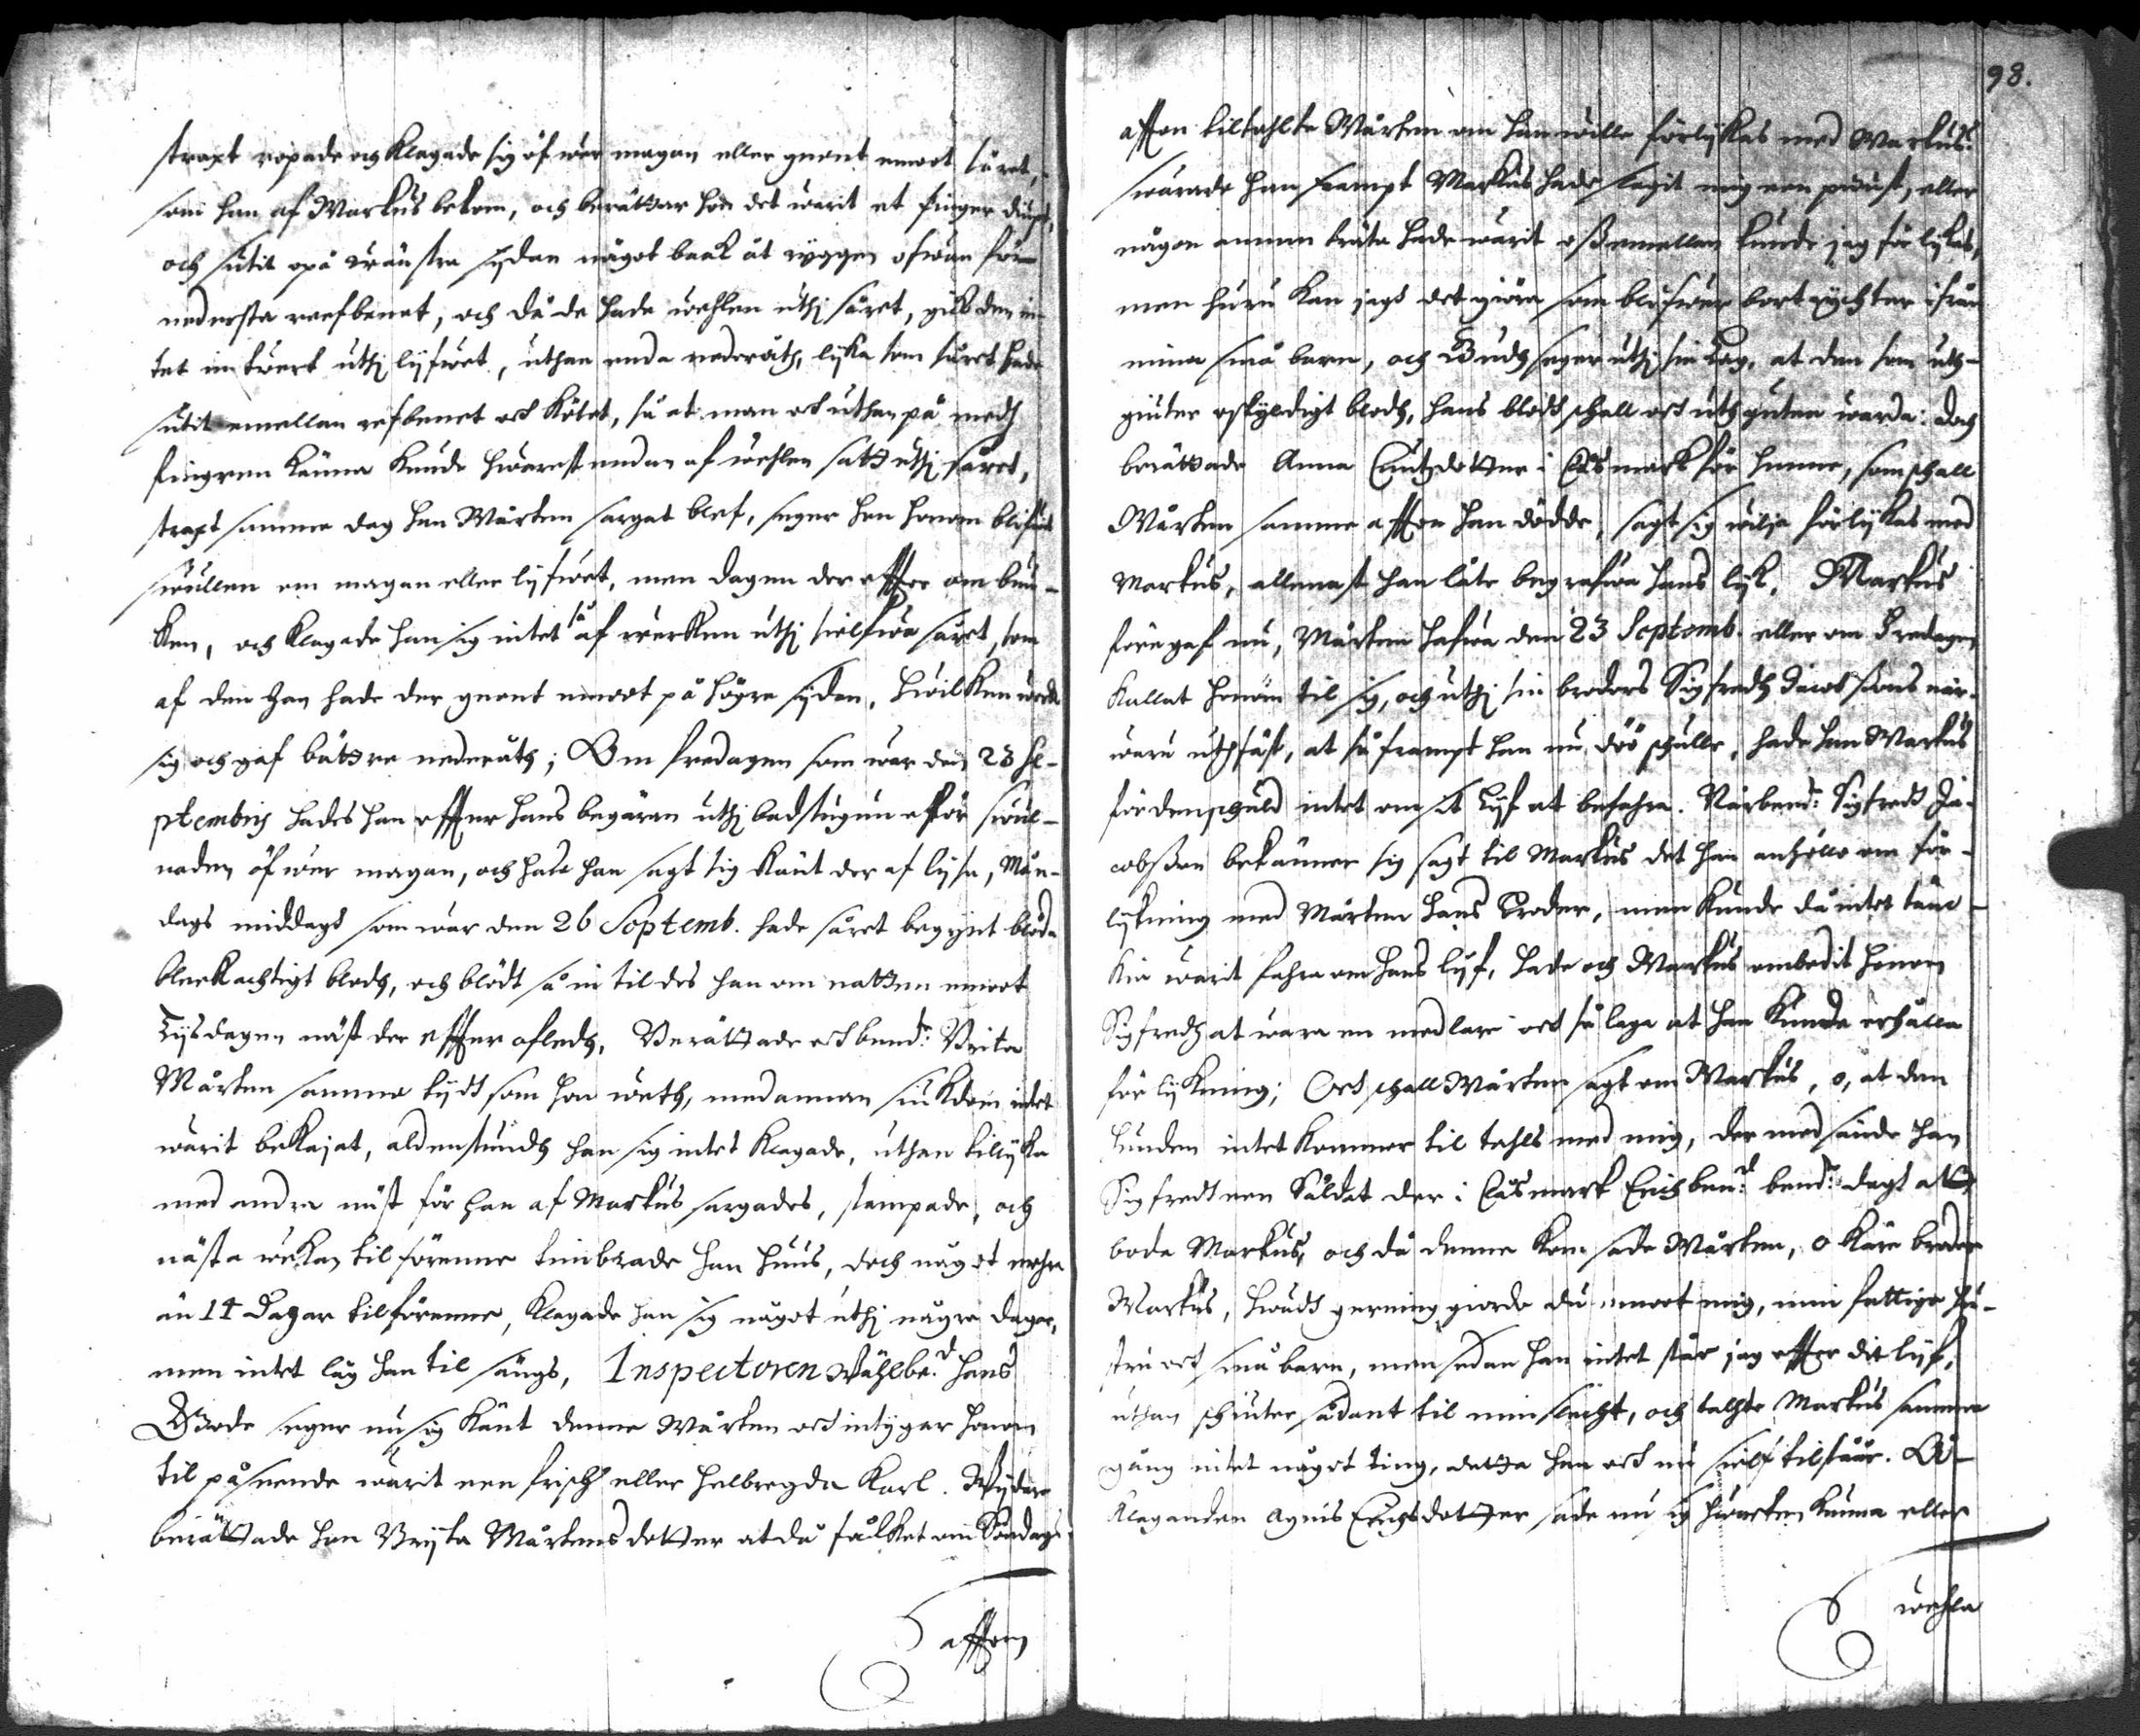 straxt ropade och klagade sig öfwer magan eller gnont emoot såret,
som han af Markus bekom, och berättar hon det warit et finger diupt,
och sutit opå wänstra sydan något baak åt ryggen ofwan för
nedersta reefbenet, och då de hade wehlen uthj såret, gick den in-
tet in twert uthj lyfwet, uthan enda nederåth, lyka som såret hade
sutit emellan refbenet och kötet, så at man och uthanpå medh
fingren känna kunde hwarest endan af wehlen satt uthj såret,
straxt samma dag han Mårten sargat blef, seger hon honom blifwit
swullen om magan eller lyfwet, men dagen der effter om buu-
ken, och klagade han sig intet så af wärken uthj sielfwa såret, som
af den han hade der gnont emoot på högra sydan, hwilken
sig och gaf bättre nederåth; Om fredagen som war den 23 Se-
ptembris hades han effter hans begäran uthj badstugun för swul-
naden öfwer magan, och hade han sagt sig känt der af lysa, Mån-
dags middags som war den 26 Septemb. hade såret begynt blöda
bleekachtigt blodh, och blödt så in til des han om natten emoot
Tysdagen näst der effter afledh, Berättade och bend: Brita
Mårten samma tydh som hon weth, med annan siukdom intet
warit bekajat, aldenstundh han sig intet klagade, uthan tillyka
med andra näst för han af Markus sargades, stampade, och
nästa wekan til förenne timbrade han huus, doch något mehra
än 14 Dagar tilförenne, klagade han sig något uthj några dagar,
men intet låg han til sängs, Inspectoren Wählbe:d Hans
Bode seger nu sig känt denne Mårten och intygar honom
til påseende warit een frisch eller helbregda Karl. Wydare
berättade hon Bryta Mårtensdotter at då fålket om Söndags
affton
98.
affton tiltahlte Mårten om han wille förlykas med Markus:
swarade han frampt Markus hade slagit mig een puust, eller
någon annan träta hade warit oss emellan kunde jag förlykas,
men huru kan jagh det giöra som blifwer bortryckter ifrån
mina små barn, och Gudh seger uthj sin Lag, at den som uth-
giuter oskyldigt blodh, hans blodh schall och uthguten warda: doch
berättade Anna dotter i Cusmark för henne, som schall
Mårten samma affton han dödde, sagt sig wilja förlykas med
Markus, allenast han låte begrafwa hans lyk. Markus
föregaf nu, Mårten hafwa den 23 Septemb. eller om Fredagen
kallat honom til sig, och uthj sin broders Sigfredh Jacobssons när-
waru uthsäst, at så frampt han nu döö schulle, hade han Markus
för denschuld intet om sit Lyf at befahra. Närbend: Sigfredh Ja-
cobsson bekänner sig sagt til Markus det han anhölle om för-
lykning med Mårten hans broder, men kunde då intet tänc-
kia warit fahra om hans lyf, hade och Markus ombedit honom
Sigfredh at wara en medlare och så laga at han kunde erhålla
förlykning; Och schall Mårten sagt om Markus, o, at den
hunden intet kommer til tahls med mig, der med sände han
Sigfredh een Såldat der i Cusmark Erich ben:d bend: dagh att
boda Markus, och då denne kom sade Mårten, o käre broder
Markus, hwadh gerning giorde du emoot mig, min fattige hu-
stru och små barn, men sedan han intet står jag effter dit lyf,
uthan schiuter sådant til min slächt, och talhte Markus samma
gång intet något ting, detta han och nu sielf tilstäår. Å-
klaganden Agnis Erichsdotter sade nu sig hwarken kunna eller
wehla